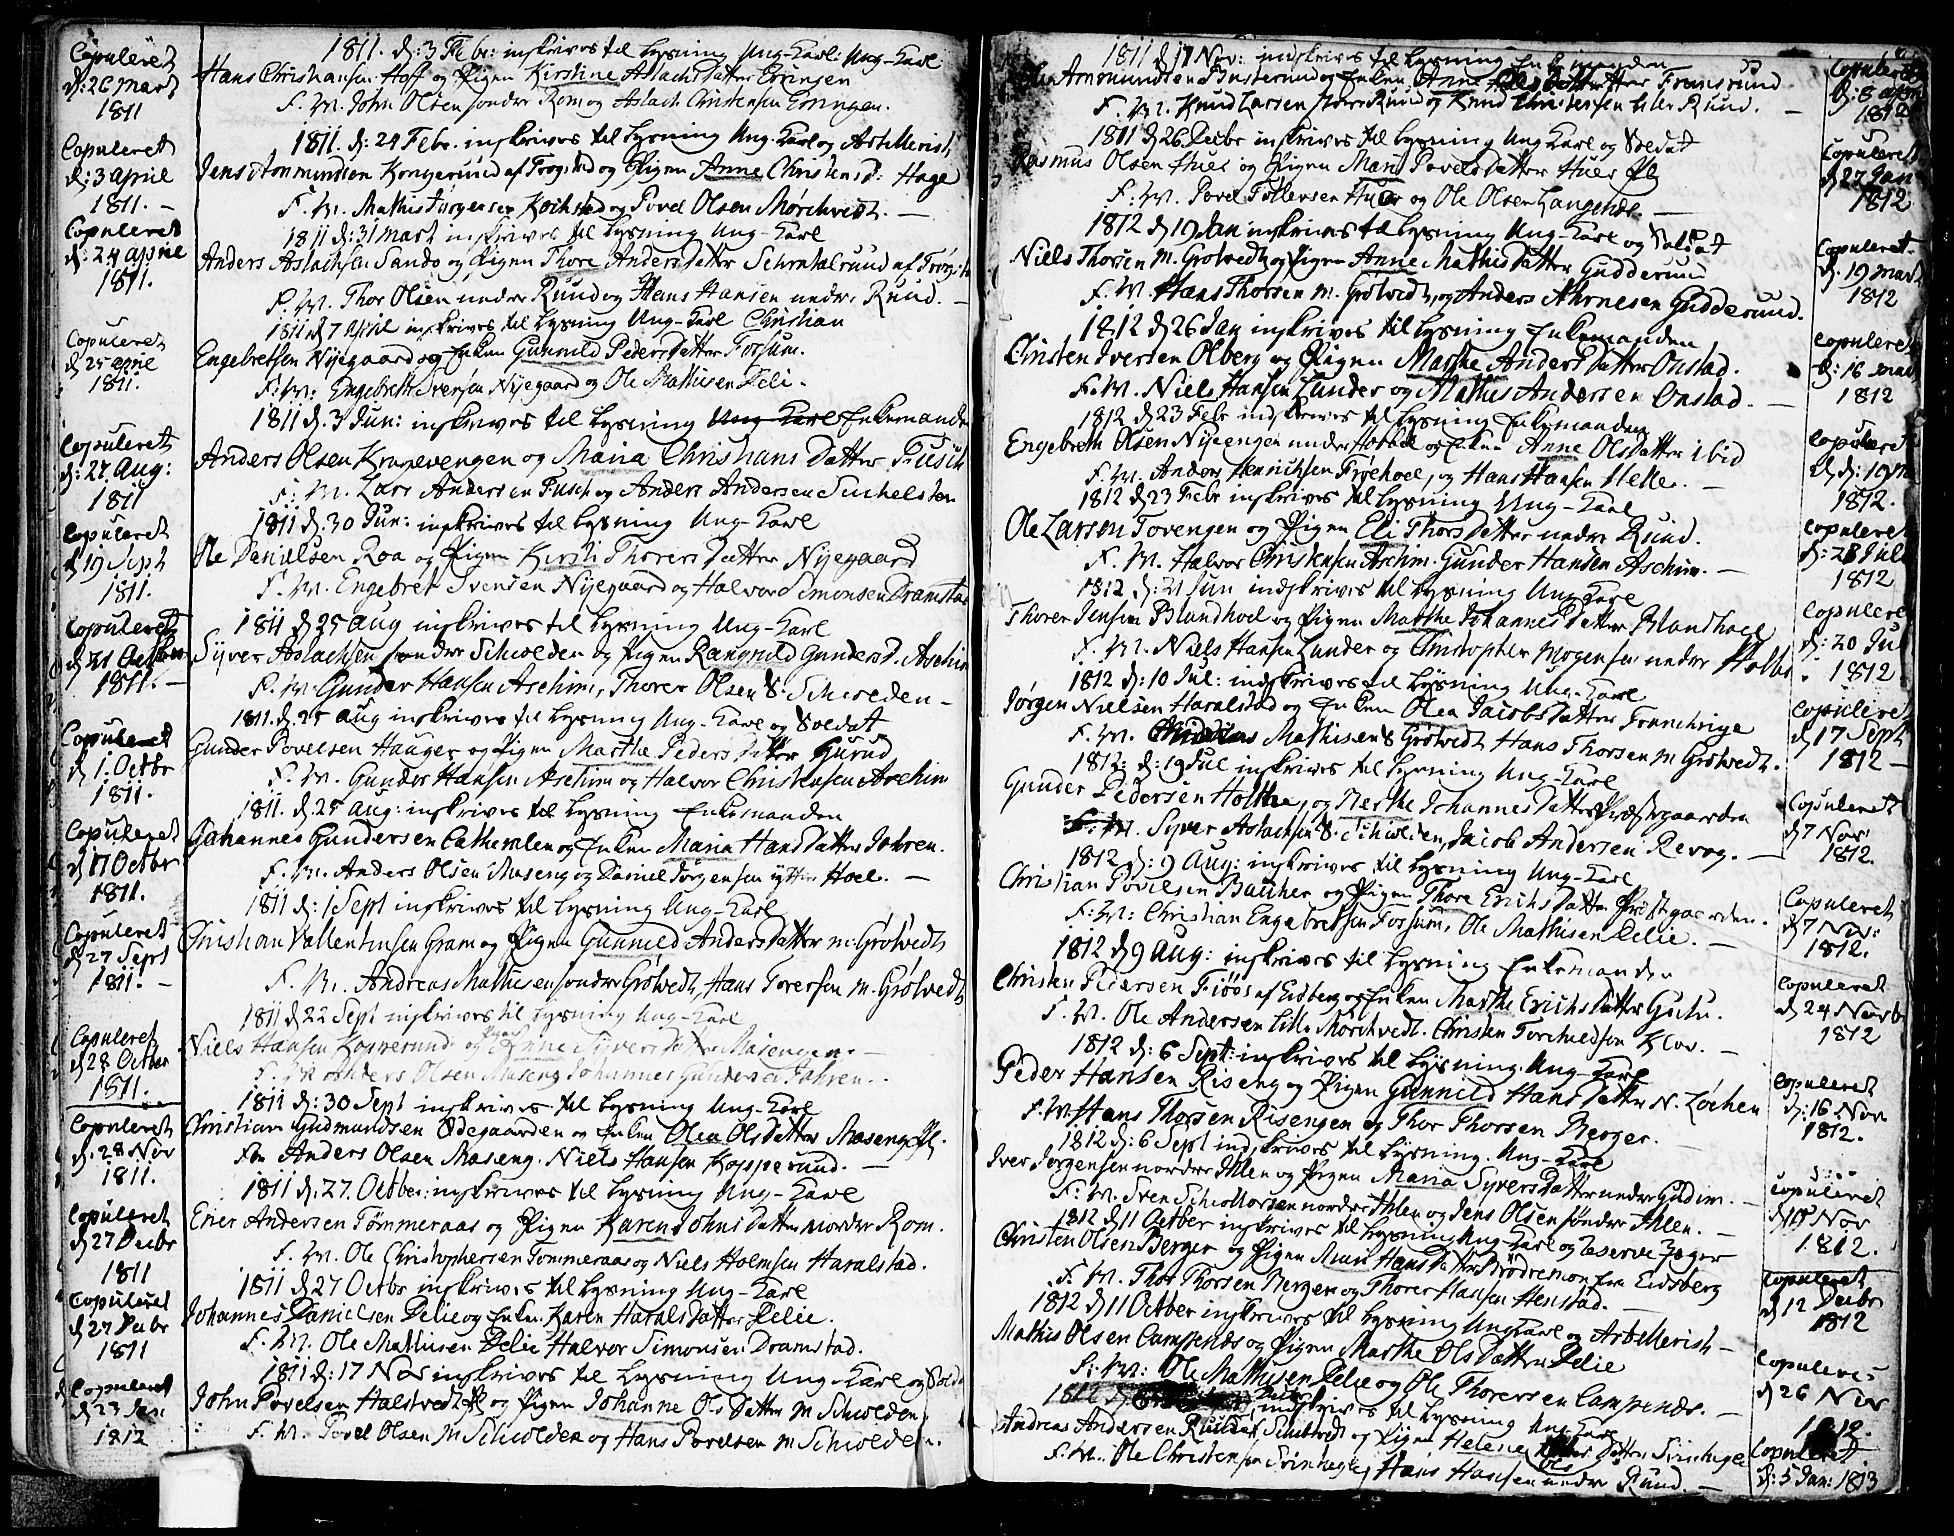 Copuleret
d: 26 Mart
1811
1811. d: 3 Febr: inskrives til Lysning Ung-Karl
Hans Christiansen Hoft og Pigen Kirstine Aslachs Datter Eringsen
F. M. John Olsen søndre Rom og Aslach Christensen Eringen.
Copuleret
d: 3 April
1811. —
1811. d: 24 Febr. inskrives til Lysning Ung-Karl og Artillerist
Jens Amundsen Kongerund af Trogstad og Pigen Anne Christensd: Hage
F. M. Mathis Jørgensen Kochstad og Povel Olsen Mørchvedt. —
Copuleret
d: 24 April
1811.
1811 d: 31 Mart inskrives til Lysning Ung-Karl
Anders Aslachsen Sando og Pigen Thore Anders Datter af Trogstad
F. M. Thor Olsen nedre Rund og Hans Hansen nedre Rund. —
Copuleret
d 25 April
1811.
1811 d 7 April inskrives til Lysning Ung-Karl Christian
Engebretsen Nyegaard og Enken Gunnild Peders Datter Fossum.
F: M: Engebreth Svensen Nyegaard og Ole Mathisen Delie.
Copuleret
d: 27 Aug:
1811
1811 d. 3 Jun: inskrives til Lysning Ung Karl Enkemanden
Anders Olsen Kragevengen og Maria Christians Datter Fusch
F: M. Lars Andersen Fusch og Anders Andersen
Copuleret
d 19 Sept
1811.
1811 d. 30 Jun: inskrives til Lysning Ung-Karl
Ole Danielsen Roa og Pigen Kirsti Thorers Datter Nyegaard
F. M. Engebret Svensen Nyegaard og Halvor Simonsen Dramstad
Copuleret
d 21 Octbr
1811. —
1811 d 25 Aug inskrives til Lysning Ung-Karl
Syver Aslachsen søndre Schiolden og Pigen Rangnild Gundersd. Aschim
F. M. Gunder Hansen Aschim, Thorer Olsen S. Schiolden —
Copuleret
d 1. Octbr
1811.
1811. d. 25 Aug inskrives til Lysning Ung-Karl og Soldat
Gunder Povelsen Hauger og Pigen Marthe Peders Datter Gurud
F. M. Gunder Hansen Aschim og Halvor Christensen Aschim
Copuleret
d 17 Octbr
1811.
1811. d. 25 Aug: inskrives til Lysning Enkemanden
Johannes Gundersen og Enken Maria Hans Datter Jahren.
F. M. Anders Olsen Maseng og Daniel Jørgensen yttre Hoel. —
Copuleret
d 27 Sept
1811. —
1811 d: 1 Sept inskrives til Lysning Ung-Karl
Christian Vallentinsen Gram og Pigen Gunnild Anders Datter m: Grøtvedt
F. M. Andreas Mathisen søndre Grøtvedt, Hans Torersen m. Grøtvedt
Copuleret
d 28 Octber
1811.
1811 d 22 Sept inskrives til Lysning Ung-Karl
Niels Hansen Kopperund og Pigen Anne Syvers Datter Masengen. —
F. M. Anders Olsen Maseng Johannes Gundersen Jahren.
Copuleret
d. 28 Nov
1811.
1811 d: 30 Sept inskrives til Lysning Ung-Karl
Christian Gudmundsen Ødegaarden og Enken Olea Ols Datter Maseng Pl.
F. M. Anders Olsen Maseng. Niels Hansen Kopperund. —
Copuleret
d 27 Decbr
1811
1811 d: 27. Octber: inskrives til Lysning Ung-Karl
Erich Andersen Tømmeraas og Pigen Karen Johns Datter nordre Rom.
F. M. Ole Christophersen Tømmeraas og Niels Holmsen Haralstad.
Copuleret
d 27 Decbr
1811
1811 d 27 Octbr inskrives til Lysning Ung-Karl
Johannes Danielsen Delie og Enken Karen Harals Datter Delie.
F. M. Ole Mathisen Delie Halvor Simonsen Dramstad.
Copuleret
d 23 Jan
1812
1811 d: 17 Nov inskrives til Lysning Ung-Karl og Soldat
John Povelsen Halstvedt Pl. og Pigen Johanne Ols Datter M Schiolden
F. M. Povel Olsen M Schiolden og Hans Povelsen M Schiolden.
1811 d 17 Nov: indskrives til Lysning Enkemanden
Amundsen Busterud og Enken Anne Datter Fransrund
F. M. Knud Larsen Rund og Knud Christensen Lille Rund. —
Copuleret
d: 8 April
1812
1811 d 26 Decbr inskrives til Lysning Ung Karl og Soldat
Rasmus Olsen Huer og Pigen Mari Povels Datter Huer Pl
F: M. Povel Tollevsen Huer og Ole Olsen Langenæs. —
Copuleret
d 27 Jan
1812
1812 d 19 Jan inskrives til Lysning Ung-Karl og Soldat
Niels Thorsen m. Grøtvedt og Pigen Anne Mathis Datter Gudderund
F. M. Hans Thorsen m. Grøtvedt, og Anders Ahrnesen Gudderund.
Copuleret
d. 19 Mart
1812
1812 d 26 Jan inskrives til Lysning Enkemanden
Christen Iversen Olberg og Pigen Marthe Anders Datter Onstad.
F. M. Niels Hansen Lunder og Mathis Andersen Onstad. —
Copuleret
d: 16 Mart
1812
1812. d 23 Febr indskrives til Lysning Enkemanden
Engebreth Olsen Nyeengen under og Enken Anne Ols Datter ibid
F. M. Anders Henrichsen Frøehoel, og Hans Hansen Melleg. —
Copuleret
d: 19
1812.
1812 d 23 Febr inskrives til Lysning Ung-Karl
Ole Larsen Tovengen og Pigen Eli Thors Datter nedre Rund.
F. M. Halvor Christensen Aschim. Gunder Hansen Aschim. —
Copuleret
d: 28 Juli
1812
1812 d: 21 Jun indskrives til Lysning Ung Karl
Thorer Jensen Blandhoel og Pigen Marthe Johannes Datter Blandhoel
F. M. Niels Hansen Lunder og Christopher Mogensen nedre Holbø
Copuleret
d: 20 Jul
1812
1812 d: 10 Jul: indskrives til Lysning Ung-Karl
Jørgen Nielsen Haralstad og Enken Olea Jacobs Datter
F. M. Mathisen S Grøtvedt Hans Thorsen m Grøtvedt.
Copuleret
d 17 Sept
1812 —
1812: d: 19 Jul inskrives til Lysning Ung-Karl
Gunder Pedersen Holthe, og Berthe Johannes Datter Præstgaarden
F: M. Syver Aslachsen S. Schiolden, Jacob Andersen Revog. —
Copuleret
d 7 Nov
1812.
1812 d: 9 Aug: inskrives til Lysning Ung-Karl
Christian Povelsen Baucher og Pigen Thore Erichs Datter Præstgaarden.
F: M: Christian Engebretsen Fossum, Ole Mathisen Delie. —
Copuleret
d 7 Nov:
1812.
1812 d 9 Aug: inskrives til Lysning Enkemanden
Christen Pedersen Fiøos af Eidberg og Enken Marthe Erichs Datter Gutu.
F. M. Ole Andersen Lille Mørchvedt. Christen Torchildsen Klov. —
Copuleret
d 24 Novbr
1812
1812 d: 6 Sept: inskrives til Lysning. Ung-Karl
Peder Hansen Riseng og Pigen Gunnild Hans Datter N. Løchen
F. M. Hans Thorsen Risengen og Thor Thorsen Berger.
Copuleret
d: 16 Nov
1812.
1812 d: 6 Sept indskrives til Lysning. Ung-Karl
Iver Jørgensen nordre Ihlen og Pigen Maria Syvers Datter nedre Gudim. —
F: M. Sven nordre Ihlen og Jens Olsen søndre Ihlen. —
Copuleret
Nov
1812.
1812 d 11 Octber inskrives til Lysning Ung-Karl og Reserve Jæger
Christen Olsen Berger og Pigen Mari Hans Datter Brødremon fra Eidsberg
F. M. Thor Thorsen Berger og Thorer Hansen Henstad. —
Copuleret
d 12 Decbr
1812
1812 d 11 Octber inskrives til Lysning Ung Karl og Artillerist —
Mathis Olsen Campenæs og Pigen Marthe Ols Datter Delie
F: M: Ole Mathisen Delie og Ole Thorersen Campenæs. —
Copuleret
d 26 Nov
1812.
1812 indskrives til Lysning Ung-Karl
Andreas Andersen og Pigen Helene Ols Datter Svinhegle
F. M. Ole Christensen Svinhegle, Hans Hansen nedre Rund. —
Copuleret.
d: 5 Jan: 1813